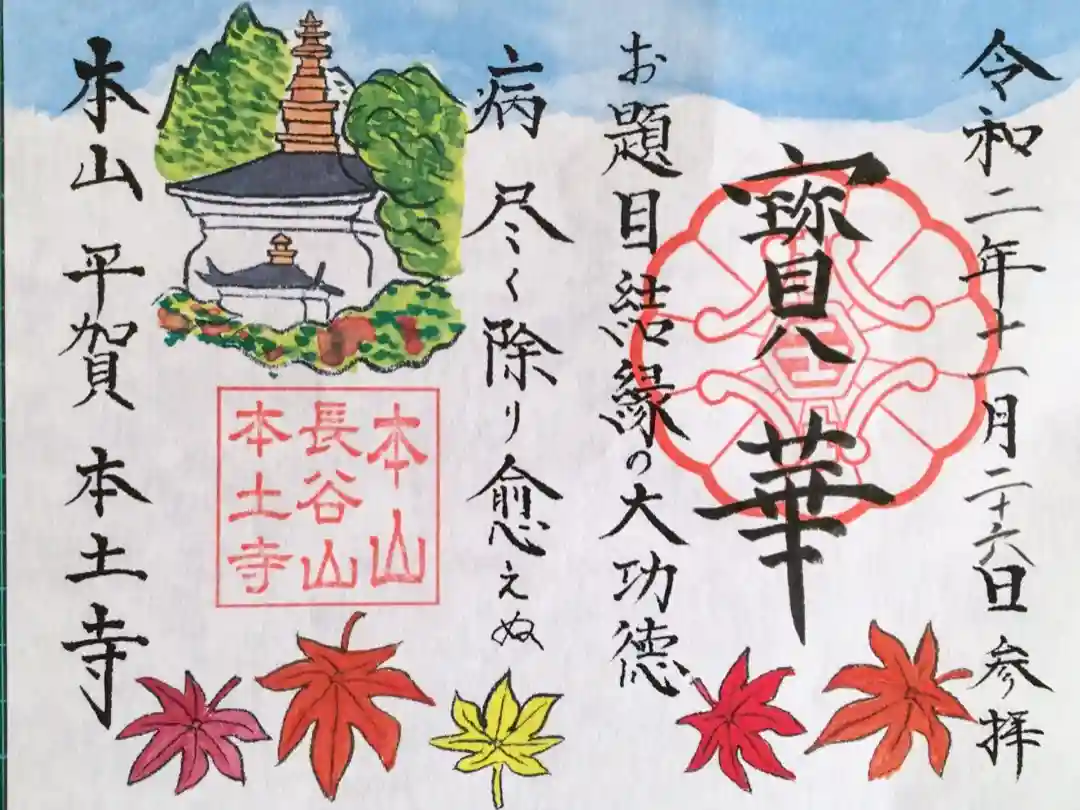 令和二年十一月二十六日参拝
寳華
お題目結縁の大功徳
病尽く除り愈えぬ
本山
長谷山
本土寺
本山 平賀 本土寺